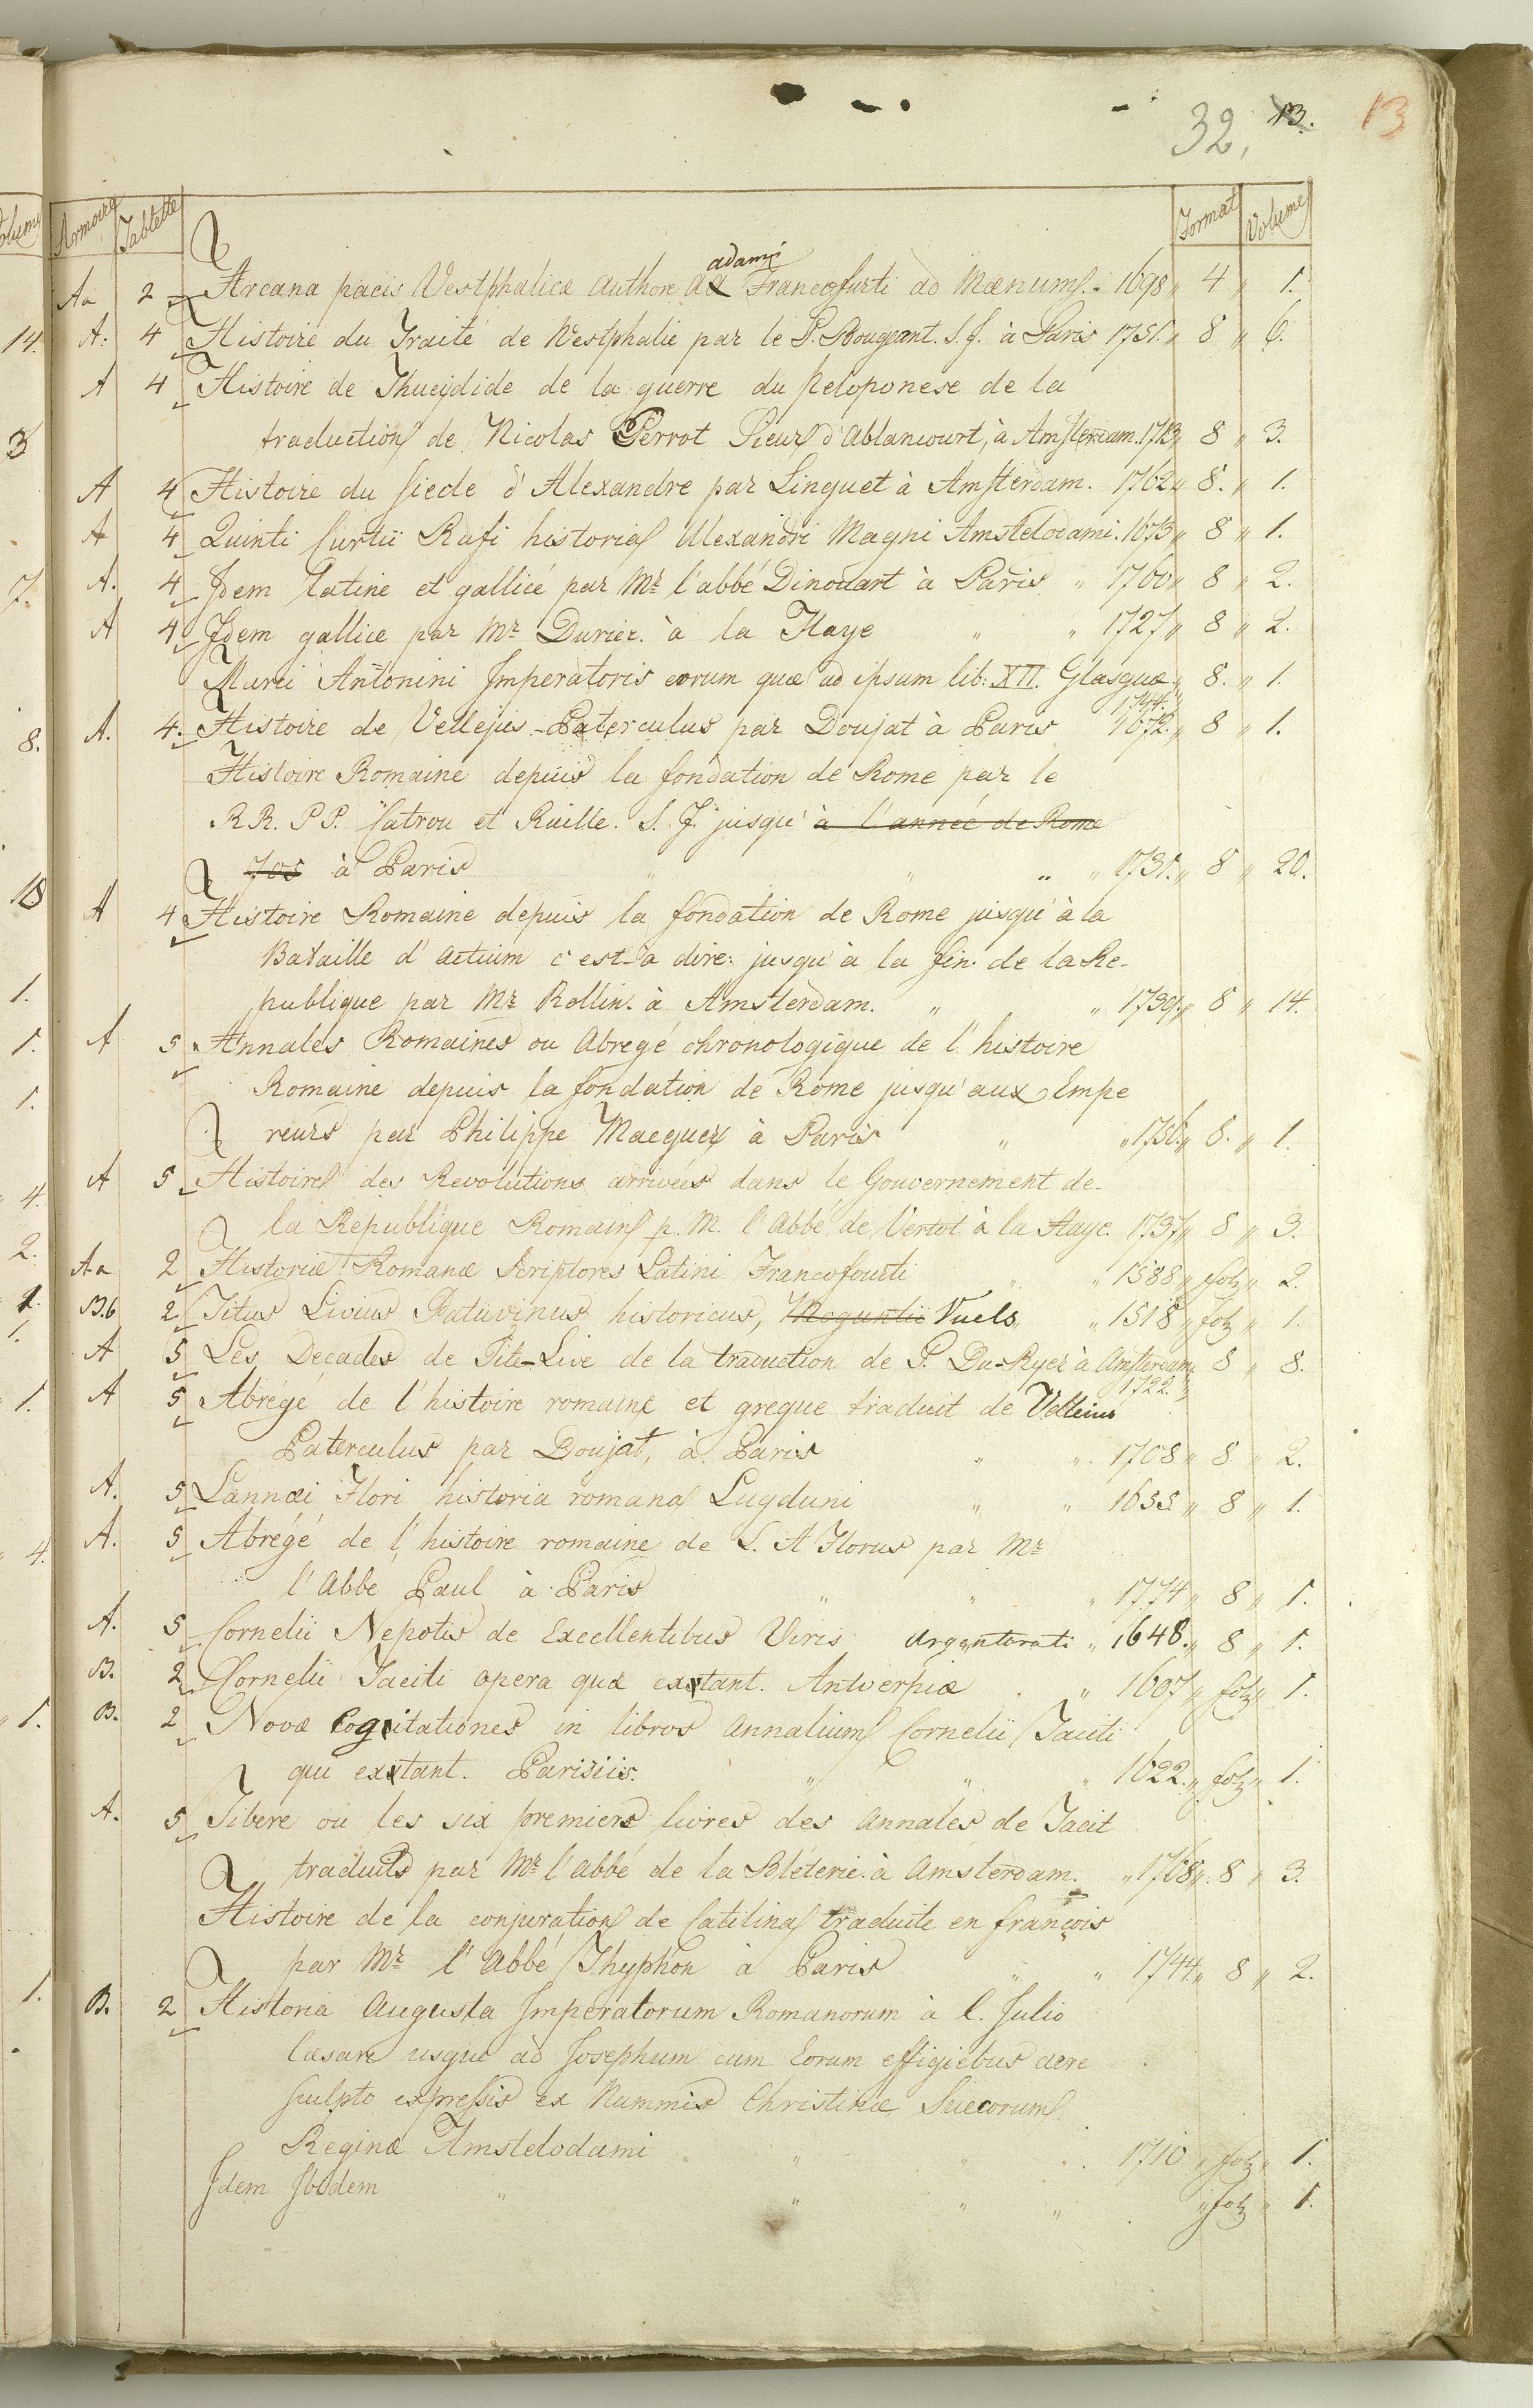 32. 13. 13
Armoire Tablette Format Volume
Aa 2 Arcana pacis Westphalicæ Authore Ad adami Francofurti ad Mænum. 1698 „ 4 „ 1.
A. 4 Histoire du Traité de Westphalie par le P. Bougeant. S. J. à Paris 1751. „ 8 „ 6.
A 4 Histoire de Thucydide de la guerre du Peloponese de la
traduction de Nicolas Perrot Sieur d'Ablancourt, à Amsterdam. 1713 „ 8 „ 3.
A 4 Histoire du Siecle d'Alexandre par Linguet à Amsterdam. 1762 „ 8. „ 1.
A 4 Quinti Curtii Rufi historia Alexandri Magni Amstelodami. 1673 „ 8 „ 1.
A. 4 Idem latine et gallicé par Mr l'abbé Dinouart à Paris „ 1760 „ 8 „ 2.
A 4 Idem gallice par Mr Durier. à la Haye „ „ 1727 „ 8 „ 2.
Marci Antonini Imperatoris eorum quæ ad ipsum lib: XII. Glasguæ „ 8. „ 1.
1744. „
A. 4. Histoire de Vellejus-Paterculus par Doujat à Paris 1672. „ 8 „ 1.
Histoire Romaine depuis la fondation de Rome par le
RR. PP. Catrou et Ruille. S. J. jusqu' à l'année de Rome
708 à Paris „ „ „ „ 1731. „ 8 „ 20.
A 4 Histoire Romaine depuis la fondation de Rome jusqu'à la
Bataille d'Actium c'est-a dire: jusqu'à la fin de la Re-
publique par Mr Rollin. à Amsterdam. „ „ 1739. „ 8 „ 14.
A 5 Annales Romaines ou Abregé chronologique de l'histoire
Romaine depuis la fondation de Rome jusqu'aux Empe
reurs par Philippe Macquer à Paris „ „ 1756. „ 8. „ 1.
A 5 Histoire des Revolutions arrivées dans le Gouvernement de
la Republique Romain p. M. l'Abbé de Vertot à la Haye. 1737 „ 8 „ 3.
Aa 2 Historiæ Romanæ Scriptores Latini Francofourti „ „ 1588 „ fol „ 2.
B.b 2 Titus Livius Patavinus historicus, Moguntiæ Vuels „ „ 1518 „ fol „ 1.
A 5 Les Decades de Tite-Live de la traduction de P. Du-Ryer à Amsterdam „ 8 „ 8.
1722. „
A 5 Abrégé de l'histoire romaine et greque traduit de Velleius
Paterculus par Doujat, à Paris „ „ 1708 „ 8 „ 2.
A. 5 Lannæi Flori historia romana Lugduni „ „ 1655. „ 8 „ 1.
A. 5 Abrégé de l'histoire romaine de L. A Florus par Mr
l'Abbé Paul à Paris „ „ „ 1774 „ 8 „ 1.
A. 5 Cornelii Nepotis de Excellentibus Viris Argentorati „ 1648. „ 8 „ 1.
B. 2 Cornelii Taciti opera quæ extant. Antverpiæ „ 1607 „ fol „ 1.
B. 2 Novæ Cogitationes in libros Annalium Cornelii Taciti
qui extant. Parisiis. „ „ „ 1622. „ fol „ 1.
A. 5 Tibere ou les six premiers livres des Annales de Tacit
traduits par Mr l'abbé de la Bléterie à Amsterdam. „ 1768 „ 8 „ 3.
Histoire de la conjuration de Catilina traduite en françois
par Mr l'Abbé Thyphon à Paris „ „ 1744 „ 8 „ 2.
B. 2 Historia Augusta Imperatorum Romanorum à C. Julio
Cæsare usque ad Josephum cum Eorum effigiebus aere
sculpto expressis ex Nummis Christinæ Suecorum
Reginæ Amstelodami „ „ „ 1710 „ fol „ 1.
Idem Ibidem „ „ „ „ „ fol „ 1.